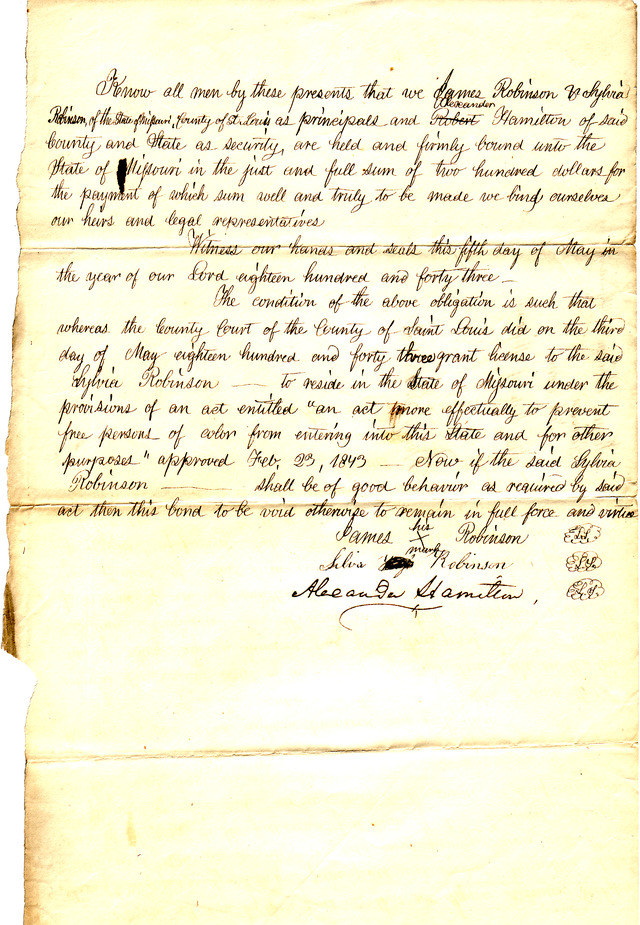 Know all men by these presents that we James Robinson & Sylvia
Robinson, of the State of Missouri, County of St. Louis as principals and Alexander Robert Hamilton of said
County and State as security, are held and firmly bound unto the
State of Missouri in the just and full sum of two hundred dollars for
the payment of which sum well and truly to be made we bind ourselves
our heirs and legal representatives
Witness our hands and seals this fifth day of May in
the year of our Lord eighteen hundred and forty three —
The condition of the above obligation is such that
whereas the County Court of the County of Saint Louis did on the third
day of May eighteen hundred and forty three grant license to the said
Sylvia Robinson — to reside in the State of Missouri under the
provisions of an act entitled "an act more effectually to prevent
free persons of color from entering into this State and for other
purposes" approved Feb. 23, 1843 — Now if the said Sylvia
Robinson — shall be of good behavior as required by said
act then this bond to be void otherwise to remain in full force and virtue
James his X mark Robinson L.S.
Silvia Robinson L.S.
Alexander Hamilton, L.S.